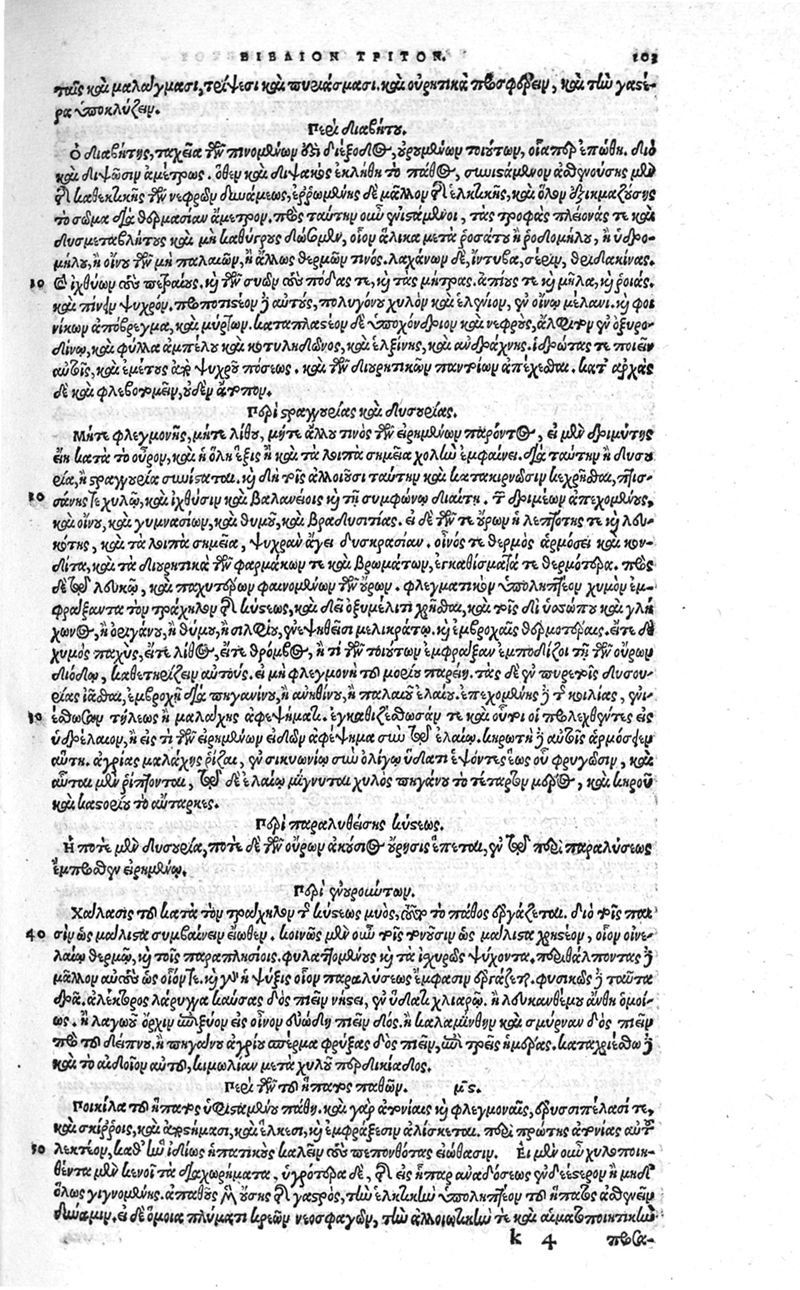 ΒΙΒΛΙΟΝ ΤΡΙΤΟΝ. 103
ταῖς καὶ μαλάγμασι, τρίψεσι καὶ πυριάσμασι. καὶ οὐρητικὰ προσφέρειν, καὶ τὴν γαστέ-
ρα ὑποκλύζειν.
Περὶ διαβήτου.
Ὁ διαβήτης, ταχεῖα τῶν πινομένων ἐστὶ διέξοδος, οὐρουμένων τοιούτων, οἷάπερ ἐπόθη. διὸ
καὶ διψῶσιν ἀμέτρως. ὅθεν καὶ διψακὸς ἐκλήθη τὸ πάθος, συνιστάμενον ἀσθενούσης μὲν
τῆς καθεκτικῆς τῶν νεφρῶν δυνάμεως, ἐρρωμένης δὲ μᾶλλον τῆς ἑλκτικῆς, καὶ ὅλον ἐξικμαζούσης
τὸ σῶμα διὰ θερμασίαν ἄμετρον. πρὸς ταύτην οὖν ἱστάμενοι, τὰς τροφὰς πλείονάς τε καὶ
δυσμεταβλήτους καὶ μὴ καθύγρους δώσομεν, οἷον ἄλικα μετὰ ῥοσάτου ἢ ῥοδομήλου, ἢ ὑδρο-
μήλου, ἢ οἴνου τῶν μὴ παλαιῶν, ἢ ἄλλως θερμῶν τινός. λαχάνων δὲ, ἴντυβα, σέριν, θριδακίνας.
10 ἐξ ἰχθύων τοὺς πετραίους. καὶ τῶν συῶν τοὺς πόδας τε, καὶ τὰς μήτρας. ἀπίους τε καὶ μῆλα, καὶ ῥοιάς.
καὶ πίνειν ψυχρόν. προποτιστέον δὲ αὐτοὺς, πολυγόνου χυλὸν καὶ ἑλένιον, ἐν οἴνῳ μέλανι. καὶ φοι
νίκων ἀπόβρεγμα, καὶ μύρτων. καταπλαστέον δὲ ὑποχόνδριον καὶ νεφροὺς, ἄλφιτον ἐν ὀξυρο-
δίνῳ, καὶ φύλλα ἀμπέλου καὶ κοτυληδόνος, καὶ ἑλξίνης, καὶ ἀνδράχνης. ἱδρῶτάς τε ποιεῖν
αὐτοῖς, καὶ ἐμέτους ἀπὸ ψυχροῦ πόσεως. καὶ τῶν διουρητικῶν παντοίων ἀπέχεσθαι. κατ' ἀρχὰς
δὲ καὶ φλεβοτομεῖν, οὐδὲν ἄτοπον.
Περὶ στραγγουρίας καὶ δυσουρίας.
Μήτε φλεγμονῆς, μήτε λίθου, μήτε ἄλλου τινὸς τῶν εἰρημένων παρόντος, εἰ μὲν δριμύτης
εἴη κατὰ τὸ οὖρον, καὶ ἡ ὅλη ἕξις ἢ καὶ τὰ λοιπὰ σημεῖα χολὴν ἐμφαίνει. διὰ ταύτην ἡ δυσου
ρία, ἢ στραγγουρία συνίσταται. καὶ δὴ τοῖς ἀλλοιοῦσι ταύτην καὶ κατακιρνῶσιν κεχρῆσθαι, πτισ-
20 σάνης τε χυλῷ, καὶ ἰχθύσιν καὶ βαλανείοις καὶ τῇ συμφώνῳ διαίτῃ. τῶν δριμέων ἀπεχομένους,
καὶ οἴνου, καὶ γυμνασίων, καὶ θυμοῦ, καὶ βραδυσιτίας. εἰ δὲ τῶν τε οὔρων ἡ λεπτότης τε καὶ λευ-
κότης, καὶ τὰ λοιπὰ σημεῖα, ψυχρὰν ἄγει δυσκρασίαν. οἶνός τε θερμὸς ἁρμόσει καὶ κον-
δῖτα, καὶ τὰ διουρητικὰ τῶν φαρμάκων τε καὶ βρωμάτων, ἐγκαθίσματά τε θερμότερα. πρὸς
δὲ τῷ λευκῷ, καὶ παχυτέρων φαινομένων τῶν οὔρων. φλεγματικὸν ὑποληπτέον χυμὸν ἐμ-
φράξαντα τὸν τράχηλον τῆς κύστεως, καὶ δεῖ ὀξυμέλιτι χρῆσθαι, καὶ τοῖς δι' ὑσσώπου καὶ γλή
χωνος, ἢ ὀριγάνου, ἢ θύμου, ἢ σιλφίου, ἐνεψηθεῖσι μελικράτῳ. καὶ ἐμβροχαῖς θερμοτέραις. εἴτε δὲ
χυμὸς παχὺς, εἴτε λίθος, εἴτε θρόμβος, ἤ τι τῶν τοιούτων ἐμφράξαν ἐμποδίζοι τῇ τῶν οὔρων
διόδῳ, καθετηρίζειν αὐτούς. εἰ μὴ φλεγμονὴ τοῦ μορίου παρείη. τὰς δὲ ἐν πυρετοῖς δυσου-
ρίας ἰᾶσθαι, ἐμβροχῇ διὰ πηγανίνου, ἢ ἀνηθίνου, ἢ παλαιοῦ ἐλαίου. ἐπεχομένης δὲ τῆς κοιλίας, ἐνι-
30 έσθωσαν τήλεως ἢ μαλάχης ἀφεψήματι. ἐγκαθιζέσθωσάν τε καὶ οὗτοι οἱ προλεχθέντες εἰς
ὑδρέλαιον, ἢ εἴς τι τῶν εἰρημένων εἰδῶν ἀφέψημα σὺν τῷ ἐλαίῳ. κηρωτὴ δὲ αὐτοῖς ἁρμόσειεν
αὕτη. ἀγρίας μαλάχης ῥίζαι, ἐν σικυωνίῳ σὺν ὀλίγῳ ὕδατι ἕψονται ἕως οὗ φρυγῶσιν, καὶ
αὗται μὲν ῥίπτονται, τῷ δὲ ἐλαίῳ μίγνυται χυλὸς πηγάνου τὸ τέταρτον μέρος, καὶ κηροῦ
καὶ καστορίου τὸ αὔταρκες.
Περὶ παραλυθείσης κύστεως.
Ἡ ποτὲ μὲν δυσουρία, ποτὲ δὲ τῶν οὔρων ἀκούσιος οὔρησις ἕπεται, ἐν τῷ περὶ παραλύσεως
ἔμπροσθεν εἰρημένῳ.
Περὶ ἐνουρούντων.
Χάλασις τοῦ κατὰ τὸν τράχηλον τῆς κύστεως μυὸς, τοῦτο τὸ πάθος ἐργάζεται. διὸ τοῖς παι
40 σὶν ὡς μάλιστα συμβαίνειν εἴωθεν. κοινῶς μὲν οὖν τοῖς τονοῦσιν ὡς μάλιστα χρηστέον, οἷον οἰνε-
λαίῳ θερμῷ, καὶ τοῖς παραπλησίοις. φυλαττομένους καὶ τὰ ἰσχυρῶς ψύχοντα. περιθάλποντας δὲ
μᾶλλον αὐτοὺς ὡς οἷόν τε. καὶ γὰρ ἡ ψύξις οἷον παραλύσεως ἔμφασιν ἐργάζεται. φυσικῶς δὲ ταῦτα
δρᾷ. ἀλέκτορος λάρυγγα καύσας δὸς πιεῖν νήστει, ἐν ὕδατι χλιαρῷ. ἢ λευκανθέμου ἄνθη ὁμοί-
ως. ἢ λαγωοῦ ὄρχιν ἐπιξύων εἰς οἶνον εὐώδη πιεῖν δός. ἢ καλαμίνθην καὶ σμύρναν δὸς πιεῖν
πρὸ τοῦ δείπνου. ἢ πηγάνου ἀγρίου σπέρμα φρύξας δὸς πιεῖν, ἐπὶ τρεῖς ἡμέρας. καταχριέσθω δὲ
καὶ τὸ αἰδοῖον αὐτοῦ, κιμωλίαν μετὰ χυλοῦ περδικιάδος.
Περὶ τῶν τοῦ ἥπατος παθῶν. μϛ.
Ποικίλα τοῦ ἥπατος ὑφισταμένου πάθη. καὶ γὰρ ἀτονίαις καὶ φλεγμοναῖς, ἐρυσιπέλασί τε,
καὶ σκίρροις, καὶ ἀποστήμασι, καὶ ἕλκεσι, καὶ ἐμφράξεσιν ἁλίσκεται. περὶ πρώτης ἀτονίας αὐτοῦ
50 λεκτέον, καθ' ἣν ἰδίως ἡπατικοὺς καλεῖν τοὺς πεπονθότας εἰώθασιν. Εἰ μὲν οὖν χυλοποιη-
θέντα μὲν κενοῖ τὰ διαχωρήματα, ὑγρότερα δὲ, τῆς εἰς ἧπαρ ἀναδόσεως ἐνδεέστερον ἢ μηδ'
ὅλως γιγνομένης. ἀπαθοῦς δὲ οὔσης τῆς γαστρὸς, τὴν ἑλκτικὴν ὑποληπτέον τοῦ ἥπατος ἀσθενεῖν
δύναμιν. εἰ δὲ ὅμοια πλύματι κρεῶν νεοσφαγῶν, τὴν ἀλλοιωτικήν τε καὶ αἱματοποιητικὴν
k 4 προσα-